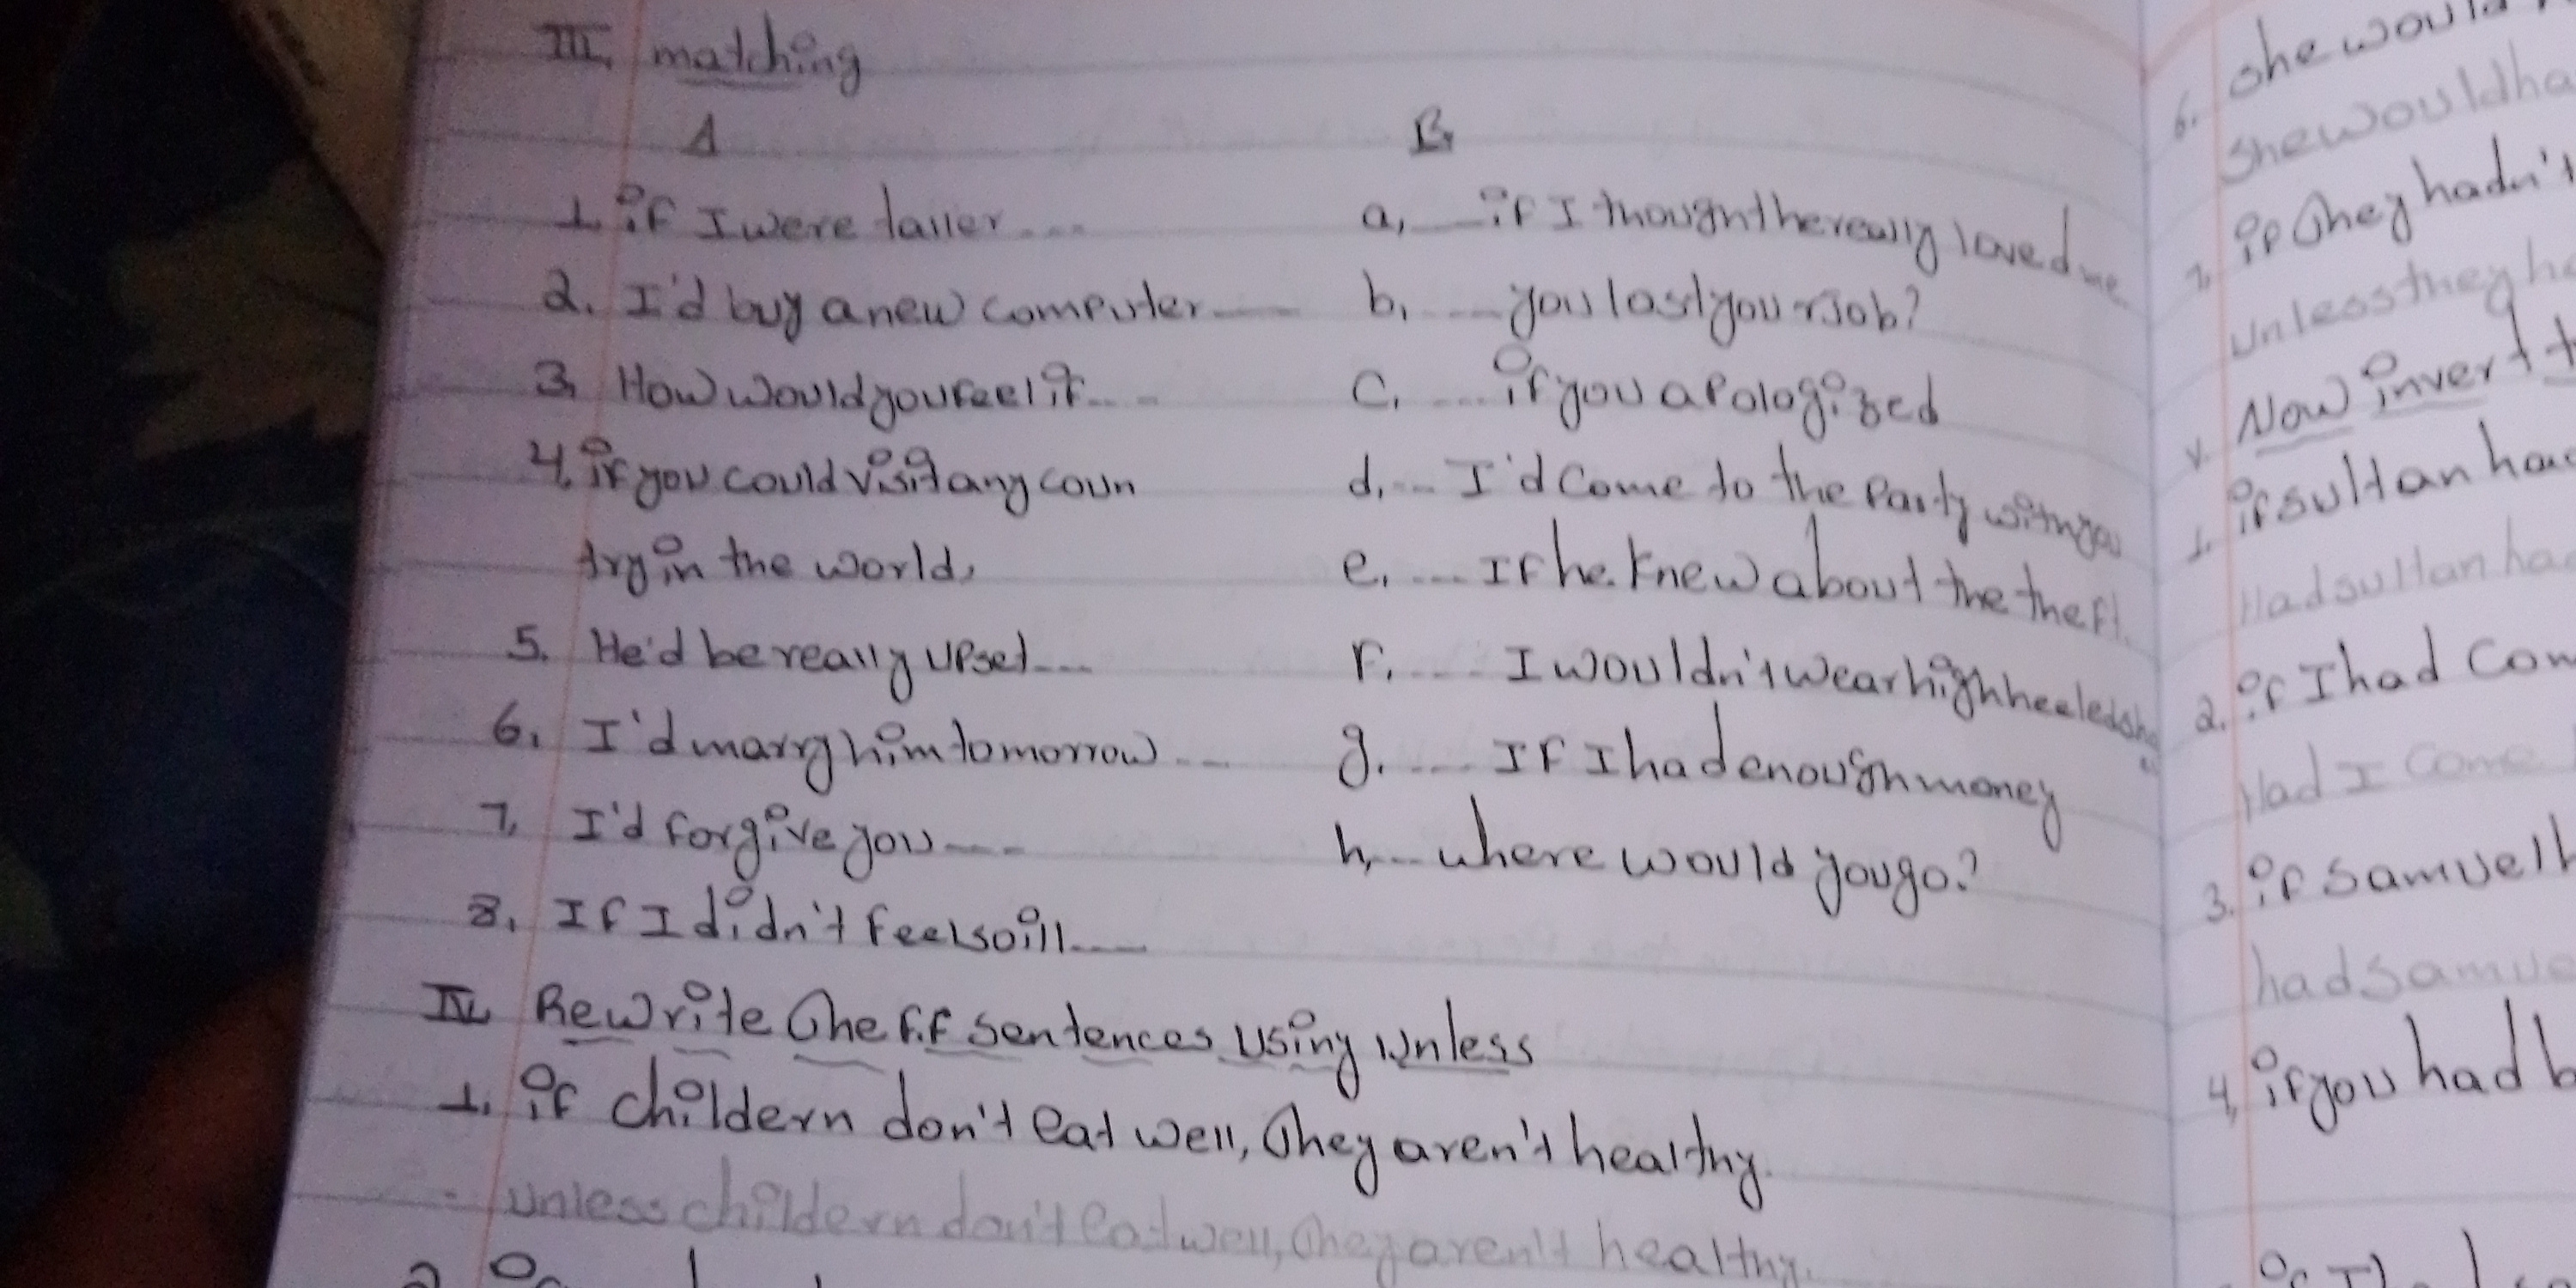 III. matching
A B
1. if I were taller.... a, ....if I thought he really loved me
2. I'd buy a new computer.... b, ....you lost your job?
3, How would you feel if.... C, ....if you apologized
4, if you could visit any coun d, ... I'd come to the party with you
try in the world, e, ....If he knew about the theft.
5. He'd be really upset.... F, .... I wouldn't wear high heeled sh
6, I'd marry him tomorrow.... g. .... IF I had enough money
7, I'd forgive you.... h, ... where would you go?
8, If I didn't feel so ill....
IV Rewrite the f.f sentences using unless
1, if childern don't eat well, they aren't healthy.
- unless childern don't eat well, they aren't healthy.
she would
6. She would ha
7, if they hadn't
unless they ha
V. Now invert t
1. if sultan had
Had sultan ha
2. if I had com
Had I come
3. if Samuel h
had Samue
4, if you had b